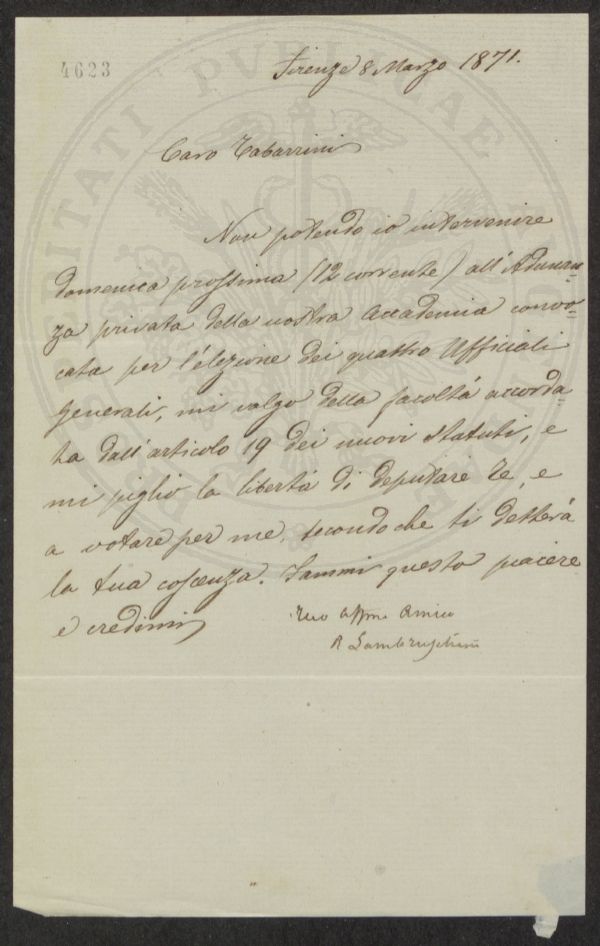 4623
Firenze 8 Marzo 1871.
Caro Tabarrini
Non potendo io intervenire
domenica prossima (12 corrente) all'Adunan-
za privata della nostra Accademia convo-
cata per l'elezione dei quattro Ufficiali
generali, mi valgo della facoltá accorda-
ta dall'articolo 19 dei nuovi statuti, e
mi piglio la libertá di deputare te, e
a votare per me, secondo che ti detterá
la tua coscenza. Fammi questo piacere
e credimi
tuo affmo Amico
R Lambruschini